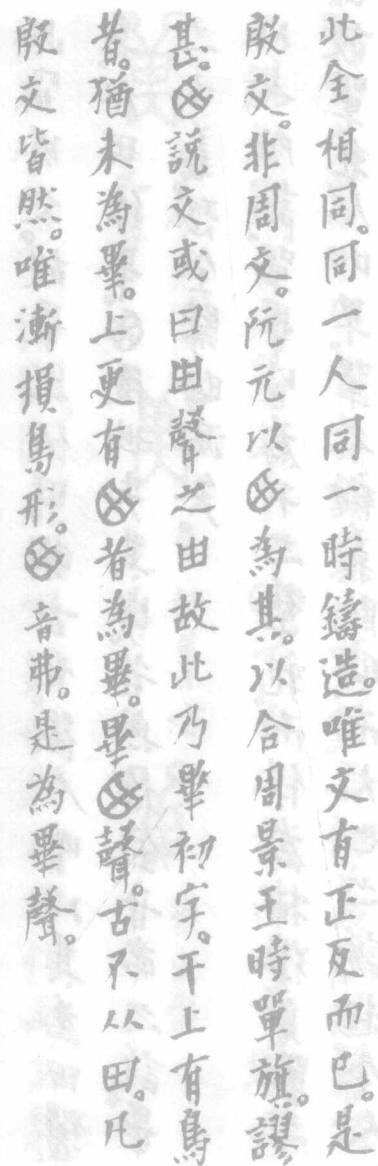 此全相同。同一人同一時鑄造。唯文有正反而已。是
殷文。非周文。阮元以為其。以合周景王時單旗。謬
甚。說文或曰由聲之由故此乃畢初字。干上有鳥
者。猶未為畢。上更有者為畢。畢聲。古不从田。凡
殷文皆然。唯漸損鳥形。音弗。是為畢聲。